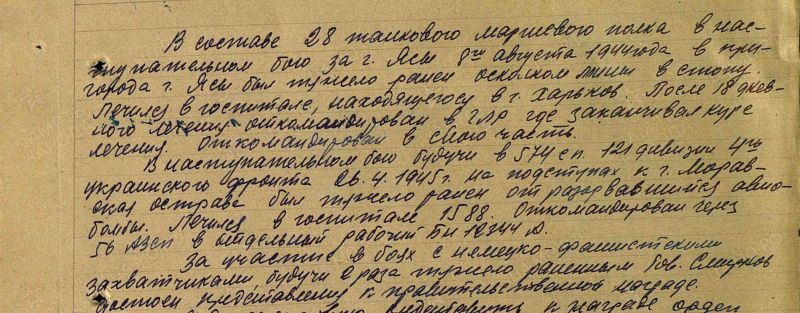 В составе 28 танкового маршевого полка в нас-
тупательном бою за г. Ясы 8го августа 1944 года в при-
города г. Ясы был тяжело ранен осколком мины в стопу.
Лечился в госпитале, находящегося в г. Харьков. После 18 днев-
ного лечения откомандирован в ГЛР где заканчивал курс
лечения. Откомандирован в свою часть.
В наступательном бою будучи в 574 с.п. 121 дивизии 4го
украинского фронта 26.4.1945г. на подступах к г. Морав-
ская острава был тяжело ранен от разорвавшийся авио-
бомбы. Лечился в госпитале 1588. Откомандирован через
56 АЗСП в отдельный рабочий Бн 12344 Д.
За участие в боях с немецко-фашистскими
захватчиками, будучи 2 раза тяжело раненным тов.
достоен представления к правительственной награде.
представить к награде орден